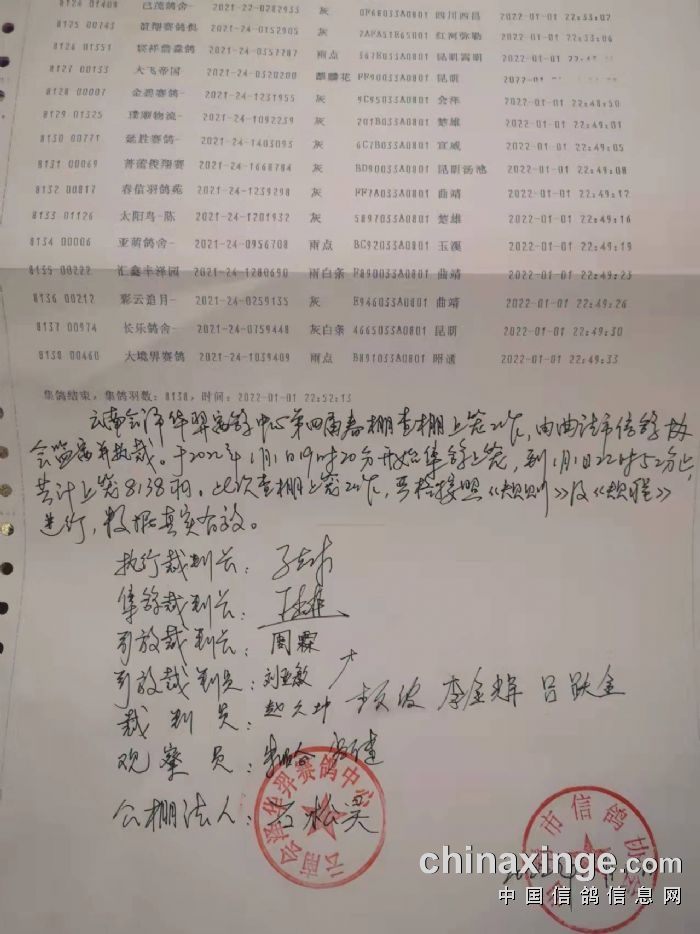 8124 01408 已茂鸽舍- 2021-22-0282933 灰 四川西昌 2022-01-01 22:33:02
8125 00743 2021-24-0152905 灰 2AFA51E65001 红河弥勒 2022-01-01 22:33:06
8126 01351 2021-24-0357287 雨点 367B033A0801 昆明嵩明 2022-01-01
8127 00133 大飞帝国 2021-24-0320200 麒麟花 FF90033A0801 昆明 2022-01-01
8128 00007 金碧赛鸽- 2021-24-1231955 灰 9C95033A0801 会泽 2022-01-01 22:48:50
8129 01325 璞顺物流- 2021-24-1092239 灰 201B033A0801 楚雄 2022-01-01 22:49:01
8130 00771 延胜赛鸽- 2021-24-1403093 灰 6C7B033A0801 宣威 2022-01-01 22:49:05
8131 00069 菩蕾俊翔赛 2021-24-1668784 灰 BD90033A0801 昆明汤池 2022-01-01 22:49:08
8132 00817 春信羽鸽苑 2021-24-1239298 灰 FF7A033A0801 曲靖 2022-01-01 22:49:12
8133 01126 太阳鸟-陈 2021-24-1201932 灰 5897033A0801 楚雄 2022-01-01 22:49:16
8134 00006 亚萌鸽舍- 2021-24-0956708 雨点 BC92033A0801 玉溪 2022-01-01 22:49:19
8135 00222 汇鑫丰泽园 2021-24-1280690 雨白条 F890033A0801 曲靖 2022-01-01 22:49:23
8136 00212 彩云追月- 2021-24-0259135 灰 E946033A0801 曲靖 2022-01-01 22:49:26
8137 00974 长乐鸽舍- 2021-24-0759448 灰白条 4665033A0801 昆明 2022-01-01 22:49:30
8138 00460 大境界赛鸽 2021-24-1039409 雨点 B891033A0801 昭通 2022-01-01 22:49:33
集鸽结束，集鸽羽数：8138，时间：2022-01-01 22:52:13
云南会泽华羿赛鸽中心第四届春棚查棚上笼工作，由曲靖市信鸽协
会监督并执裁。于2022年1月1日19时20分开始集鸽上笼，到1月1日22时52分止，
共计上笼8138羽。此次查棚上笼工作，严格按照《规则》及《规程》
进行，数据真实有效。
执行裁判长：
集鸽裁判长：
司放裁判长：周霖
司放裁判员：刘亚敏
裁判员：赵久坤 李金辉 吕跃金
观察员：
公棚法人：
云南会泽华羿赛鸽中心
市信鸽协会
chinaxinge.com
中国信鸽信息网